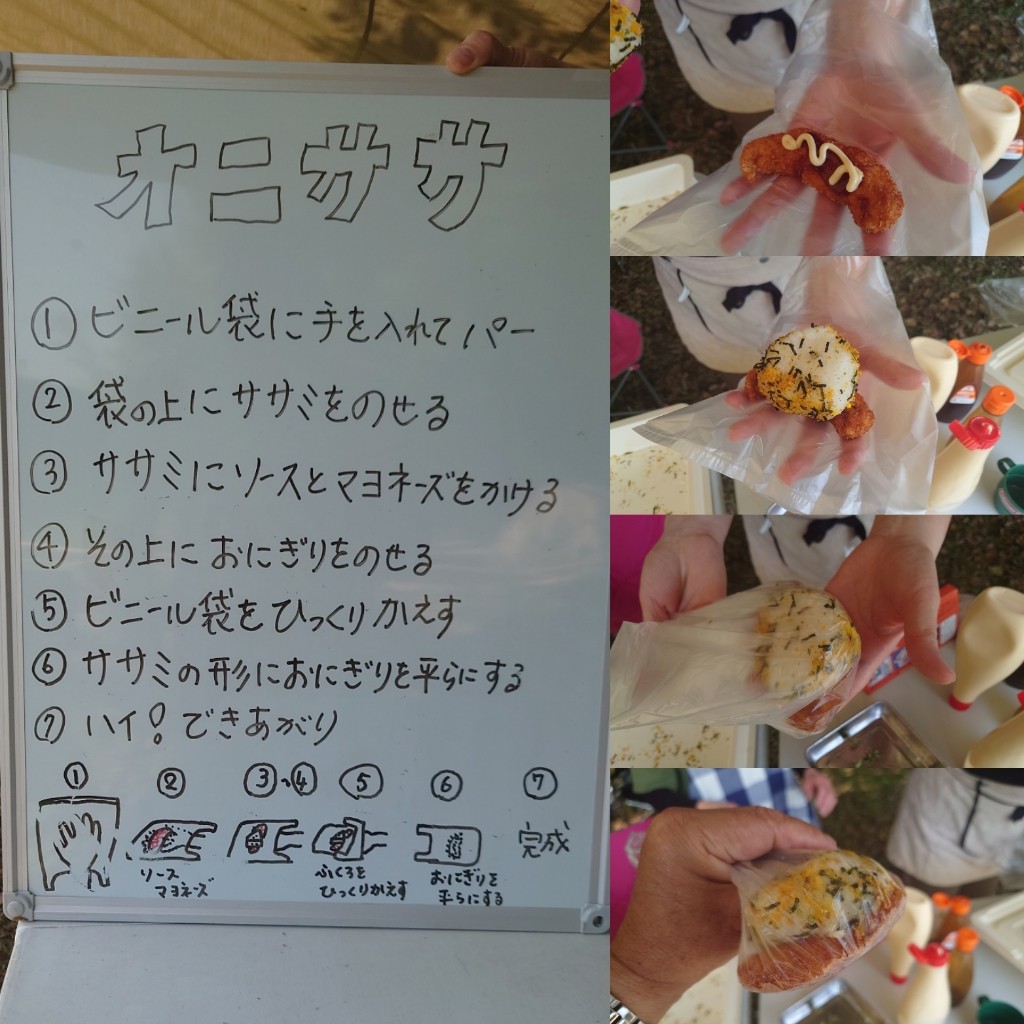 オニササ
① ビニール袋に手を入れてパー
② 袋の上にササミをのせる
③ ササミにソースとマヨネーズをかける
④ その上におにぎりをのせる
⑤ ビニール袋をひっくりかえす
⑥ ササミの形におにぎりを平らにする
⑦ ハイ!できあがり
① ② ③、④ ⑤ ⑥ ⑦
完成
ソース
マヨネーズ
ふくろを
ひっくりかえす
おにぎりを
平らにする